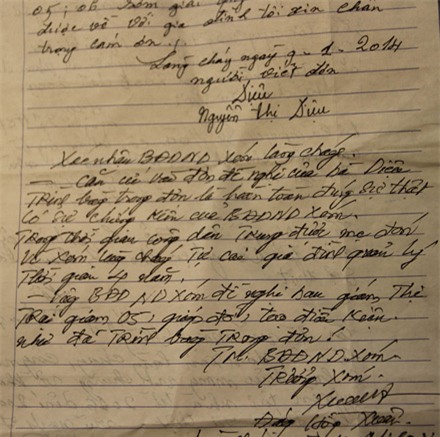 05, 06 xóm giải quy
được về với gia đình tôi xin chân
trọng cám ơn.
Làng cháy ngày 9-1-2014
người viết đơn
Diệu
Nguyễn Thị Diệu
Xác nhận BĐDND Xóm làng cháy.
— Căn cứ vào đơn đề nghị của bà Diệu
Trình trong đơn là hoàn toàn đúng sự thật
có sự chứng kiến của BĐDND Xóm.
Trong thời gian công dân Trung được mẹ đón
về Xóm làng cháy Tự cai gia đình quản lý
Thời gian 4 năm.
— Vậy BĐDND Xóm đề nghị ban giám Thị
Trại giam 05, giúp đỡ, tạo điều Kiện
như đã Trình Trong đơn!
TM. BĐDND. Xóm.
Trưởng Xóm.
Đặng Xuân